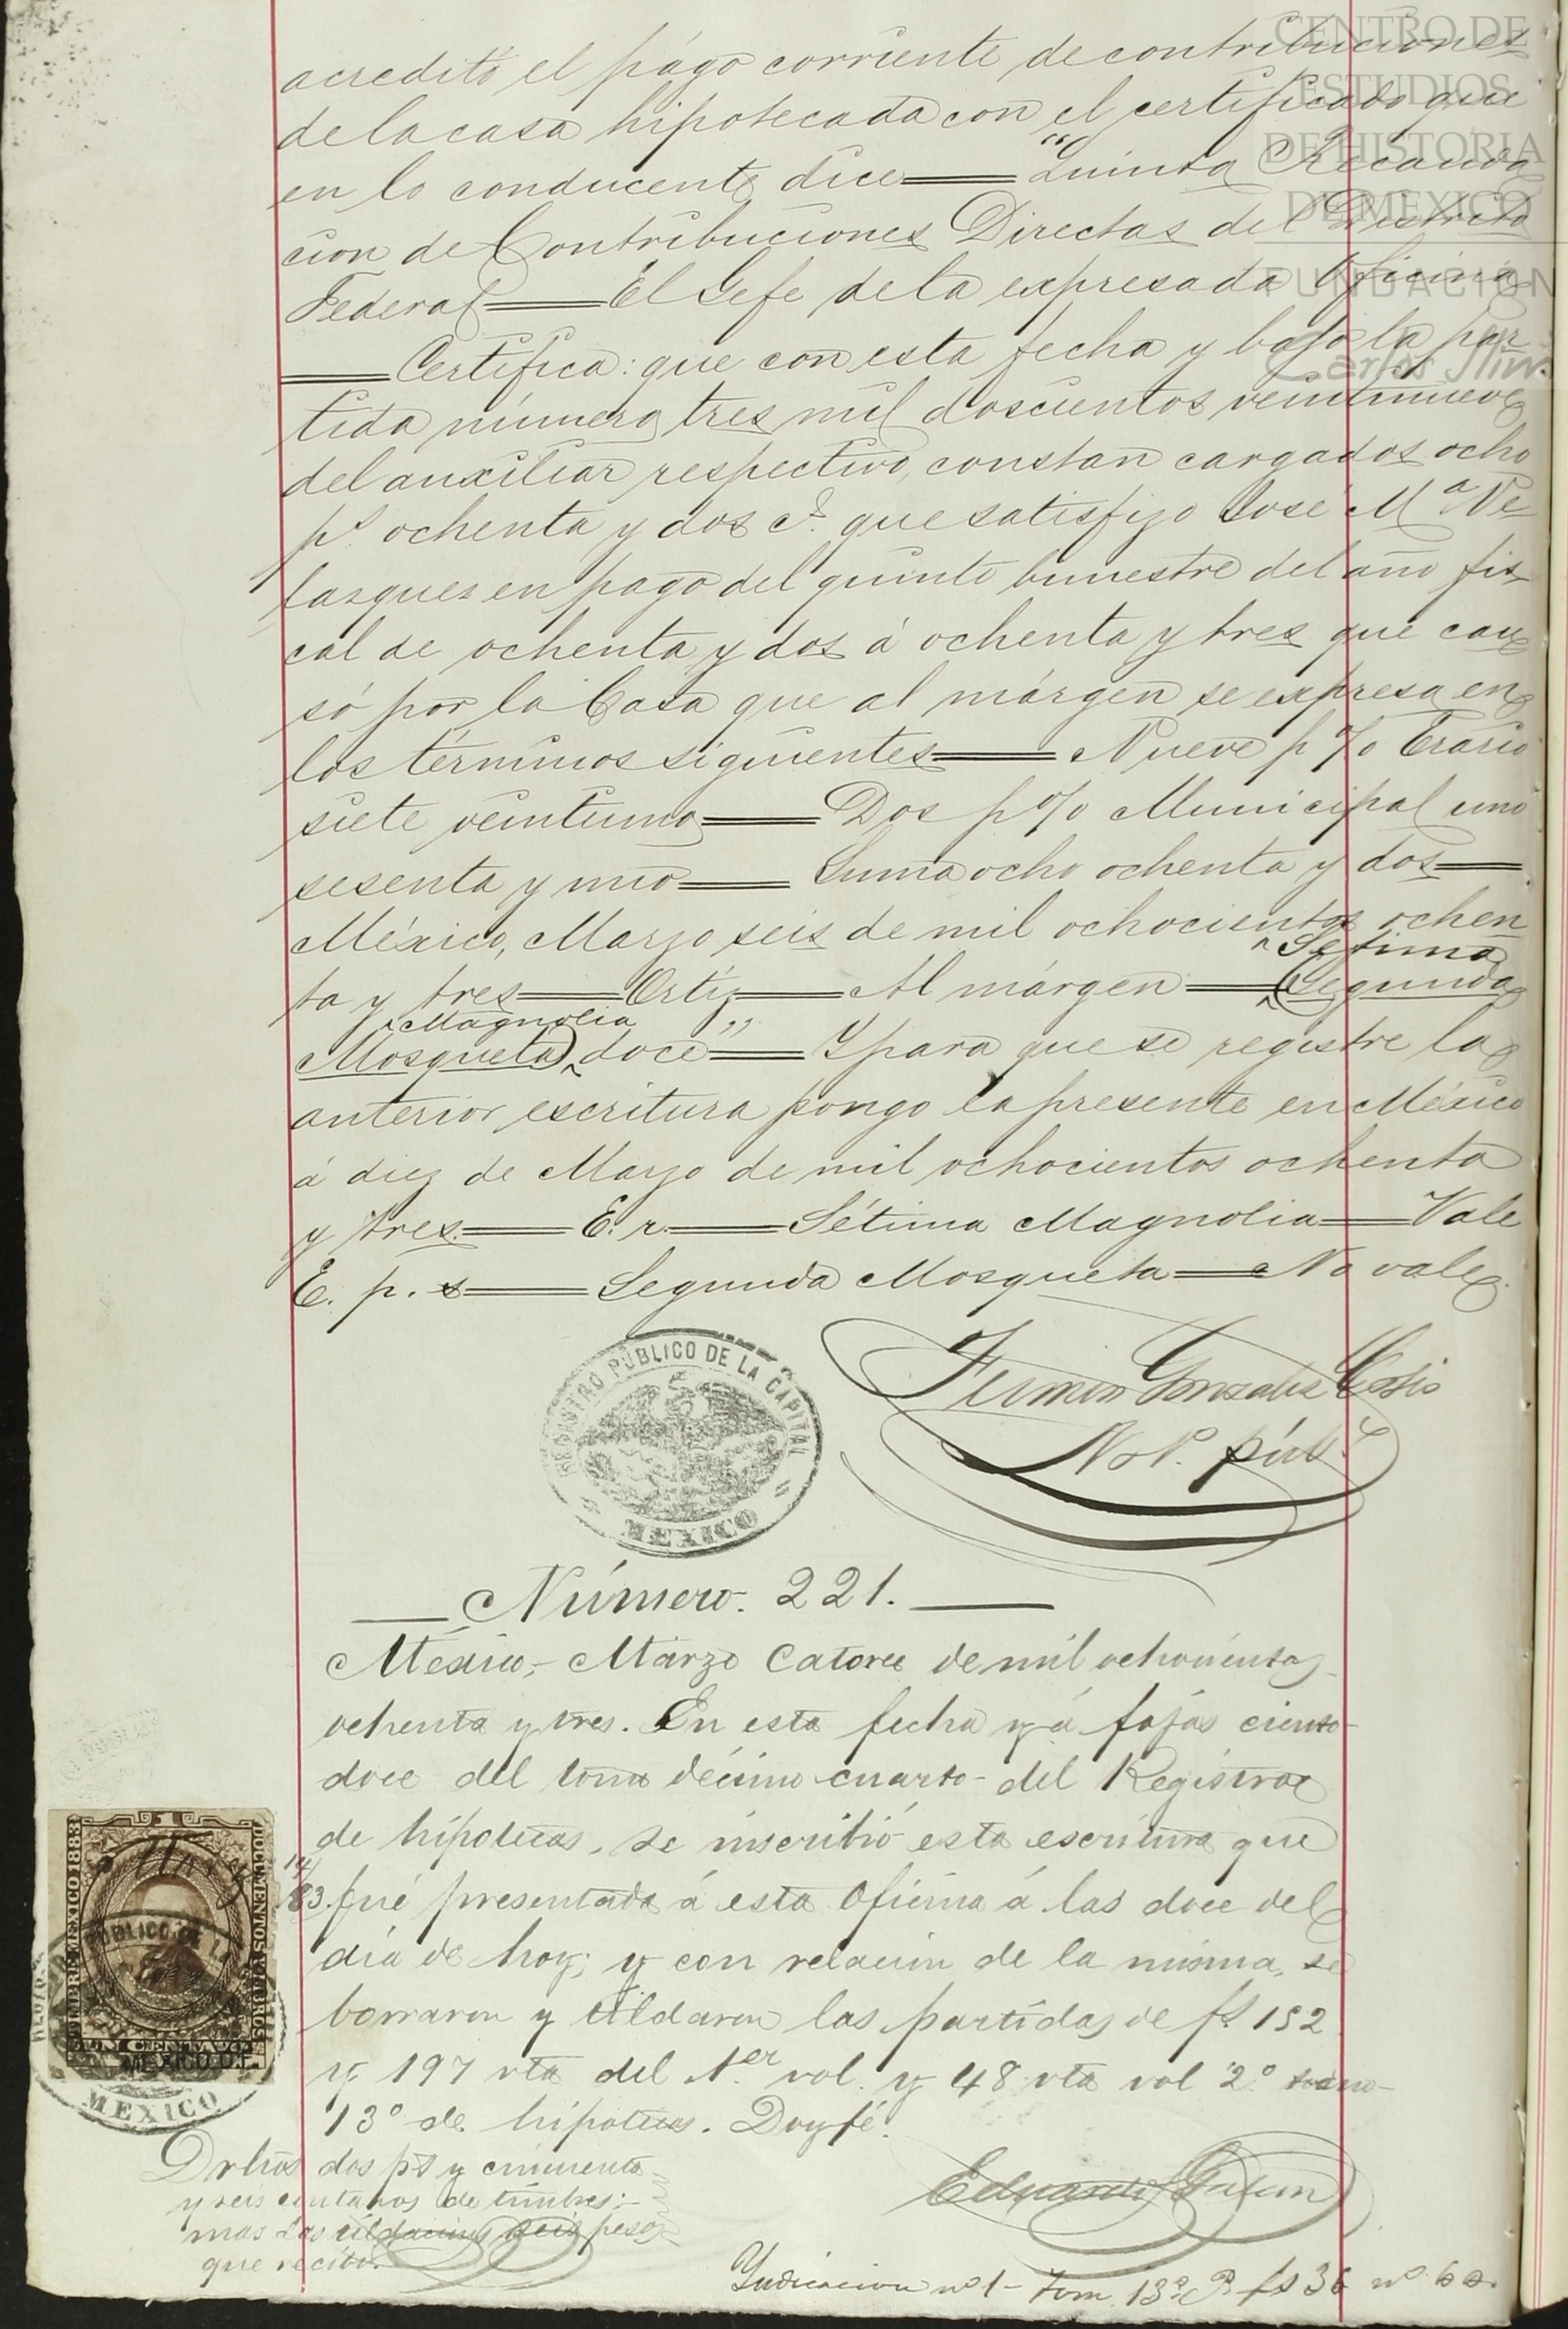 CENTRO DE
ESTUDIOS
DE HISTORIA
DE MEXICO
FUNDACIÓN
Carlos Slim
acreditó el págo corriente de contribuciones
de la casa hipotecada con el certificado que
en lo conducente dice = "Quinta Recauda
cion de Contribuciones Directas del Distrito
Federal = El Gefe de la expresada oficina
= Certifica: que con esta fecha y bajo la par
tida número tres mil doscientos veintinueve
del auxiliar respectivo, constan cargados ocho
ps. ochenta y dos cs. que satisfizo José Ma Ve
lazquez en pago del quinto bimestre del año fis
cal de ochenta y dos á ochenta y tres que cau
só por la Casa que al márgen se expresa en
los términos siguientes = Nueve p% Erario
siete veintiuno = Dos p% Municipal uno
sesenta y uno = Suma ocho ochenta y dos =
México, Marzo seis de mil ochocientos ochen
Setima
ta y tres = Ortiz = Al márgen = (Segunda
Magnolia
Mosqueta) doce" = Y para que se registre la
anterior escritura pongo la presente en México
á diez de Marzo de mil ochocientos ochenta
y tres. = E. r. = Sétima Magnolia = Vale
E. p. s = Segunda Mosqueta = No vale.
Fermin Gonzalez Cosio
Not. púbo
REGISTRO PÚBLICO DE LA CAPITAL
MEXICO
Número. 221.
México, Marzo catorce de mil ochocientos
ochenta y tres. En esta fecha y á fojas ciento
doce del tomo décimo cuarto del Registro
de hipotecas, se inscribió esta escritura que
fué presentada á esta Oficina á las doce del
día de hoy; y con relacion de la misma, se
borraron y tildaron las partidas de fs. 152
y 197 vta del 1.er vol. y 48 vta vol 2º tomo
13º de hipotecas. Doy fé.
DOCUMENTOS Y LIBROS
LIBRE MEXICO 1883
1
UN CENTAVO
MEXICO D.F.
14/
83.
PÚBLICO DE LA
MEXICO
Drhos dos ps y cincuenta
y seis centavos de timbres:
mas las tildaciones seis pesos
que recibí.
Eduardo Galan
Yndicacion nº 1 - Tom. 13º fs 36 nº 60.